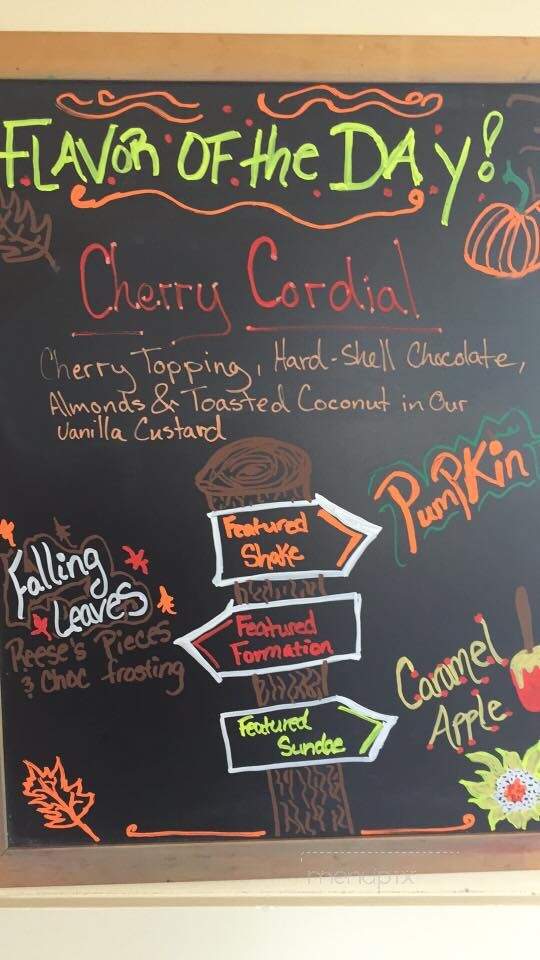 FLAVOR OF the DAy!
Cherry Cordial
Cherry Topping, Hard-Shell Chocolate,
Almonds & Toasted Coconut in Our
Vanilla Custard
Featured
Shake
Pumpkin
Falling
Leaves
Reese's Pieces
& Choc frosting
Featured
Formation
Featured
Sundae
Caramel
Apple
menupix